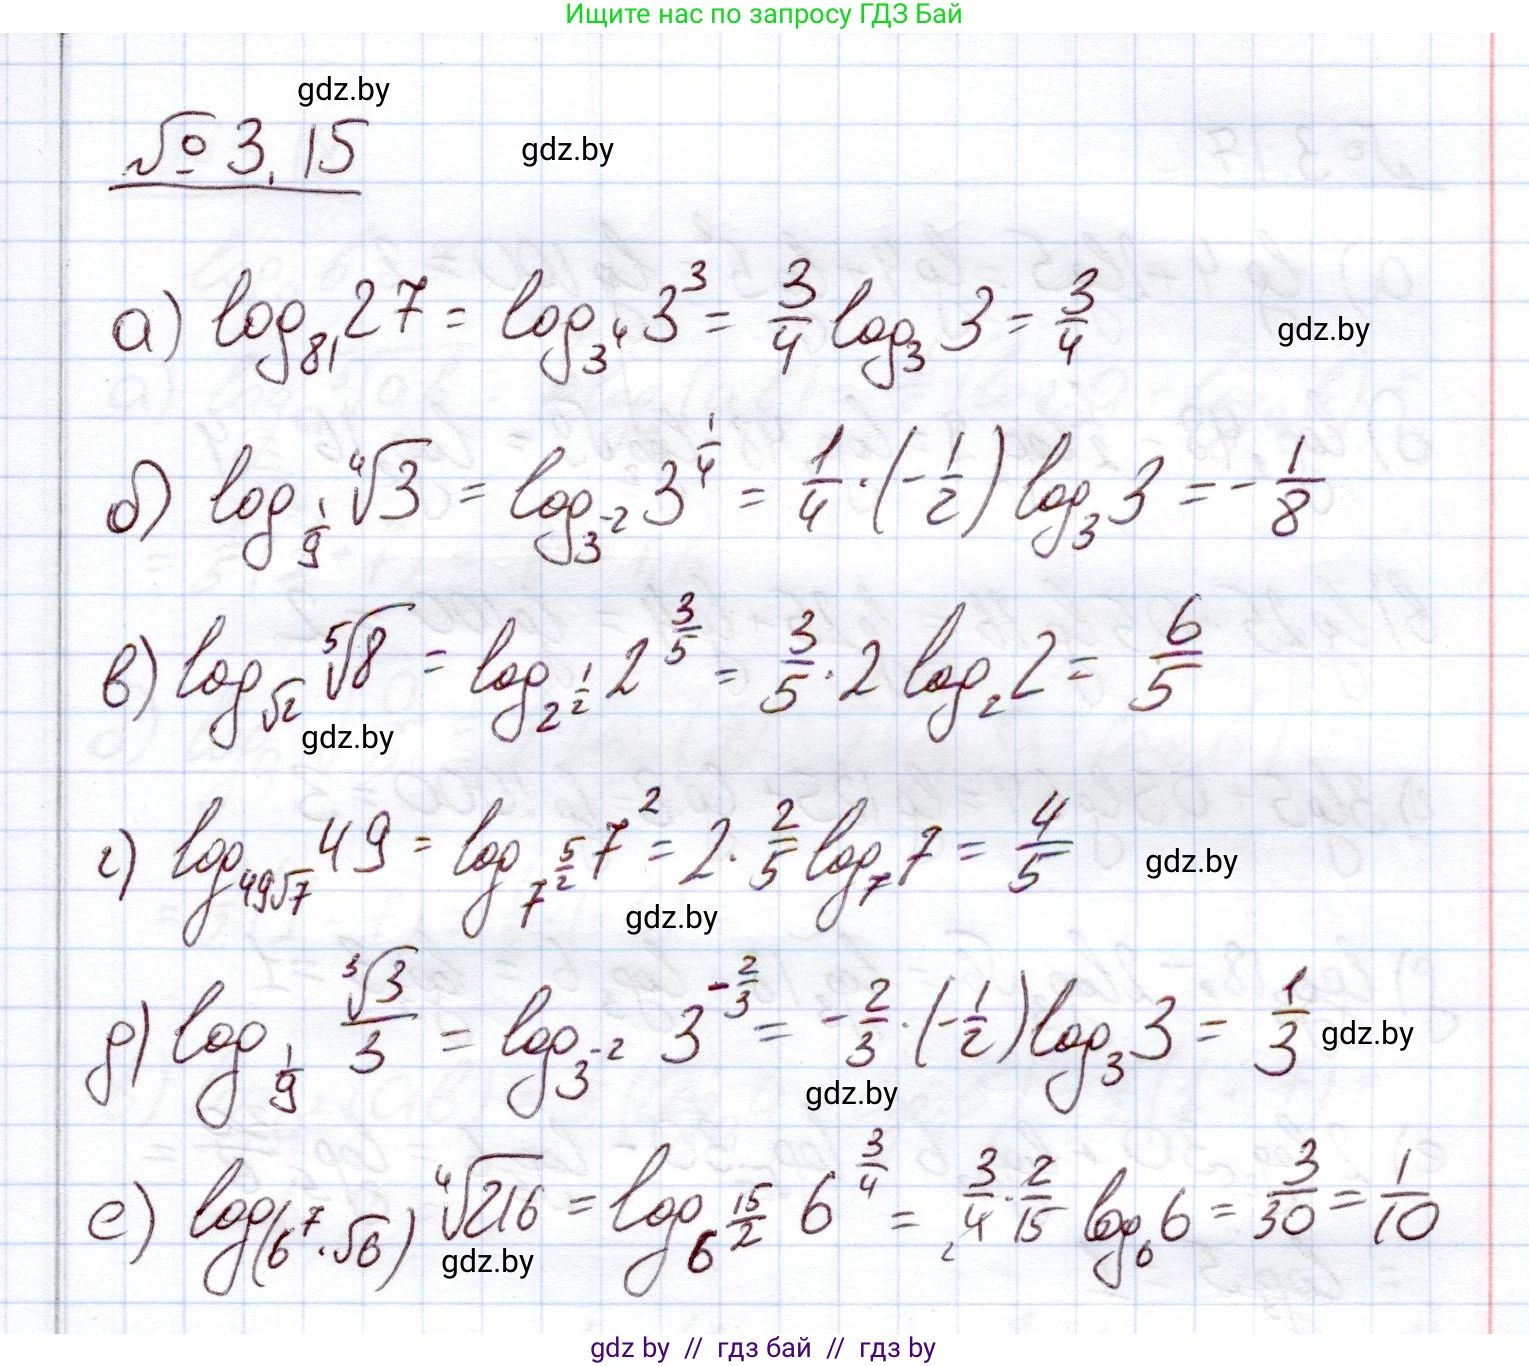 Ищите нас по запросу ГДЗ Бай
gdz.by
№ 3.15
gdz.by
а) log₈₁ 27 = log_{3⁴} 3³ = 3/4 log₃ 3 = 3/4
gdz.by
б) log_{1/9} ⁴√3 = log_{3⁻²} 3^{1/4} = 1/4 · (-1/2) log₃ 3 = -1/8
в) log_{√2} ⁵√8 = log_{2^{1/2}} 2^{3/5} = 3/5 · 2 log₂ 2 = 6/5
gdz.by
г) log_{49√7} 49 = log_{7^{5/2}} 7² = 2 · 2/5 log₇ 7 = 4/5
gdz.by
gdz.by
д) log_{1/9} ³√3/3 = log_{3⁻²} 3^{-2/3} = -2/3 · (-1/2) log₃ 3 = 1/3
gdz.by
gdz.by
е) log_{(6⁷·√6)} ⁴√216 = log_{6^{15/2}} 6^{3/4} = 3/4 · 2/15 log₆ 6 = 3/30 = 1/10
gdz.by
gdz by // гдз бай // гдз by